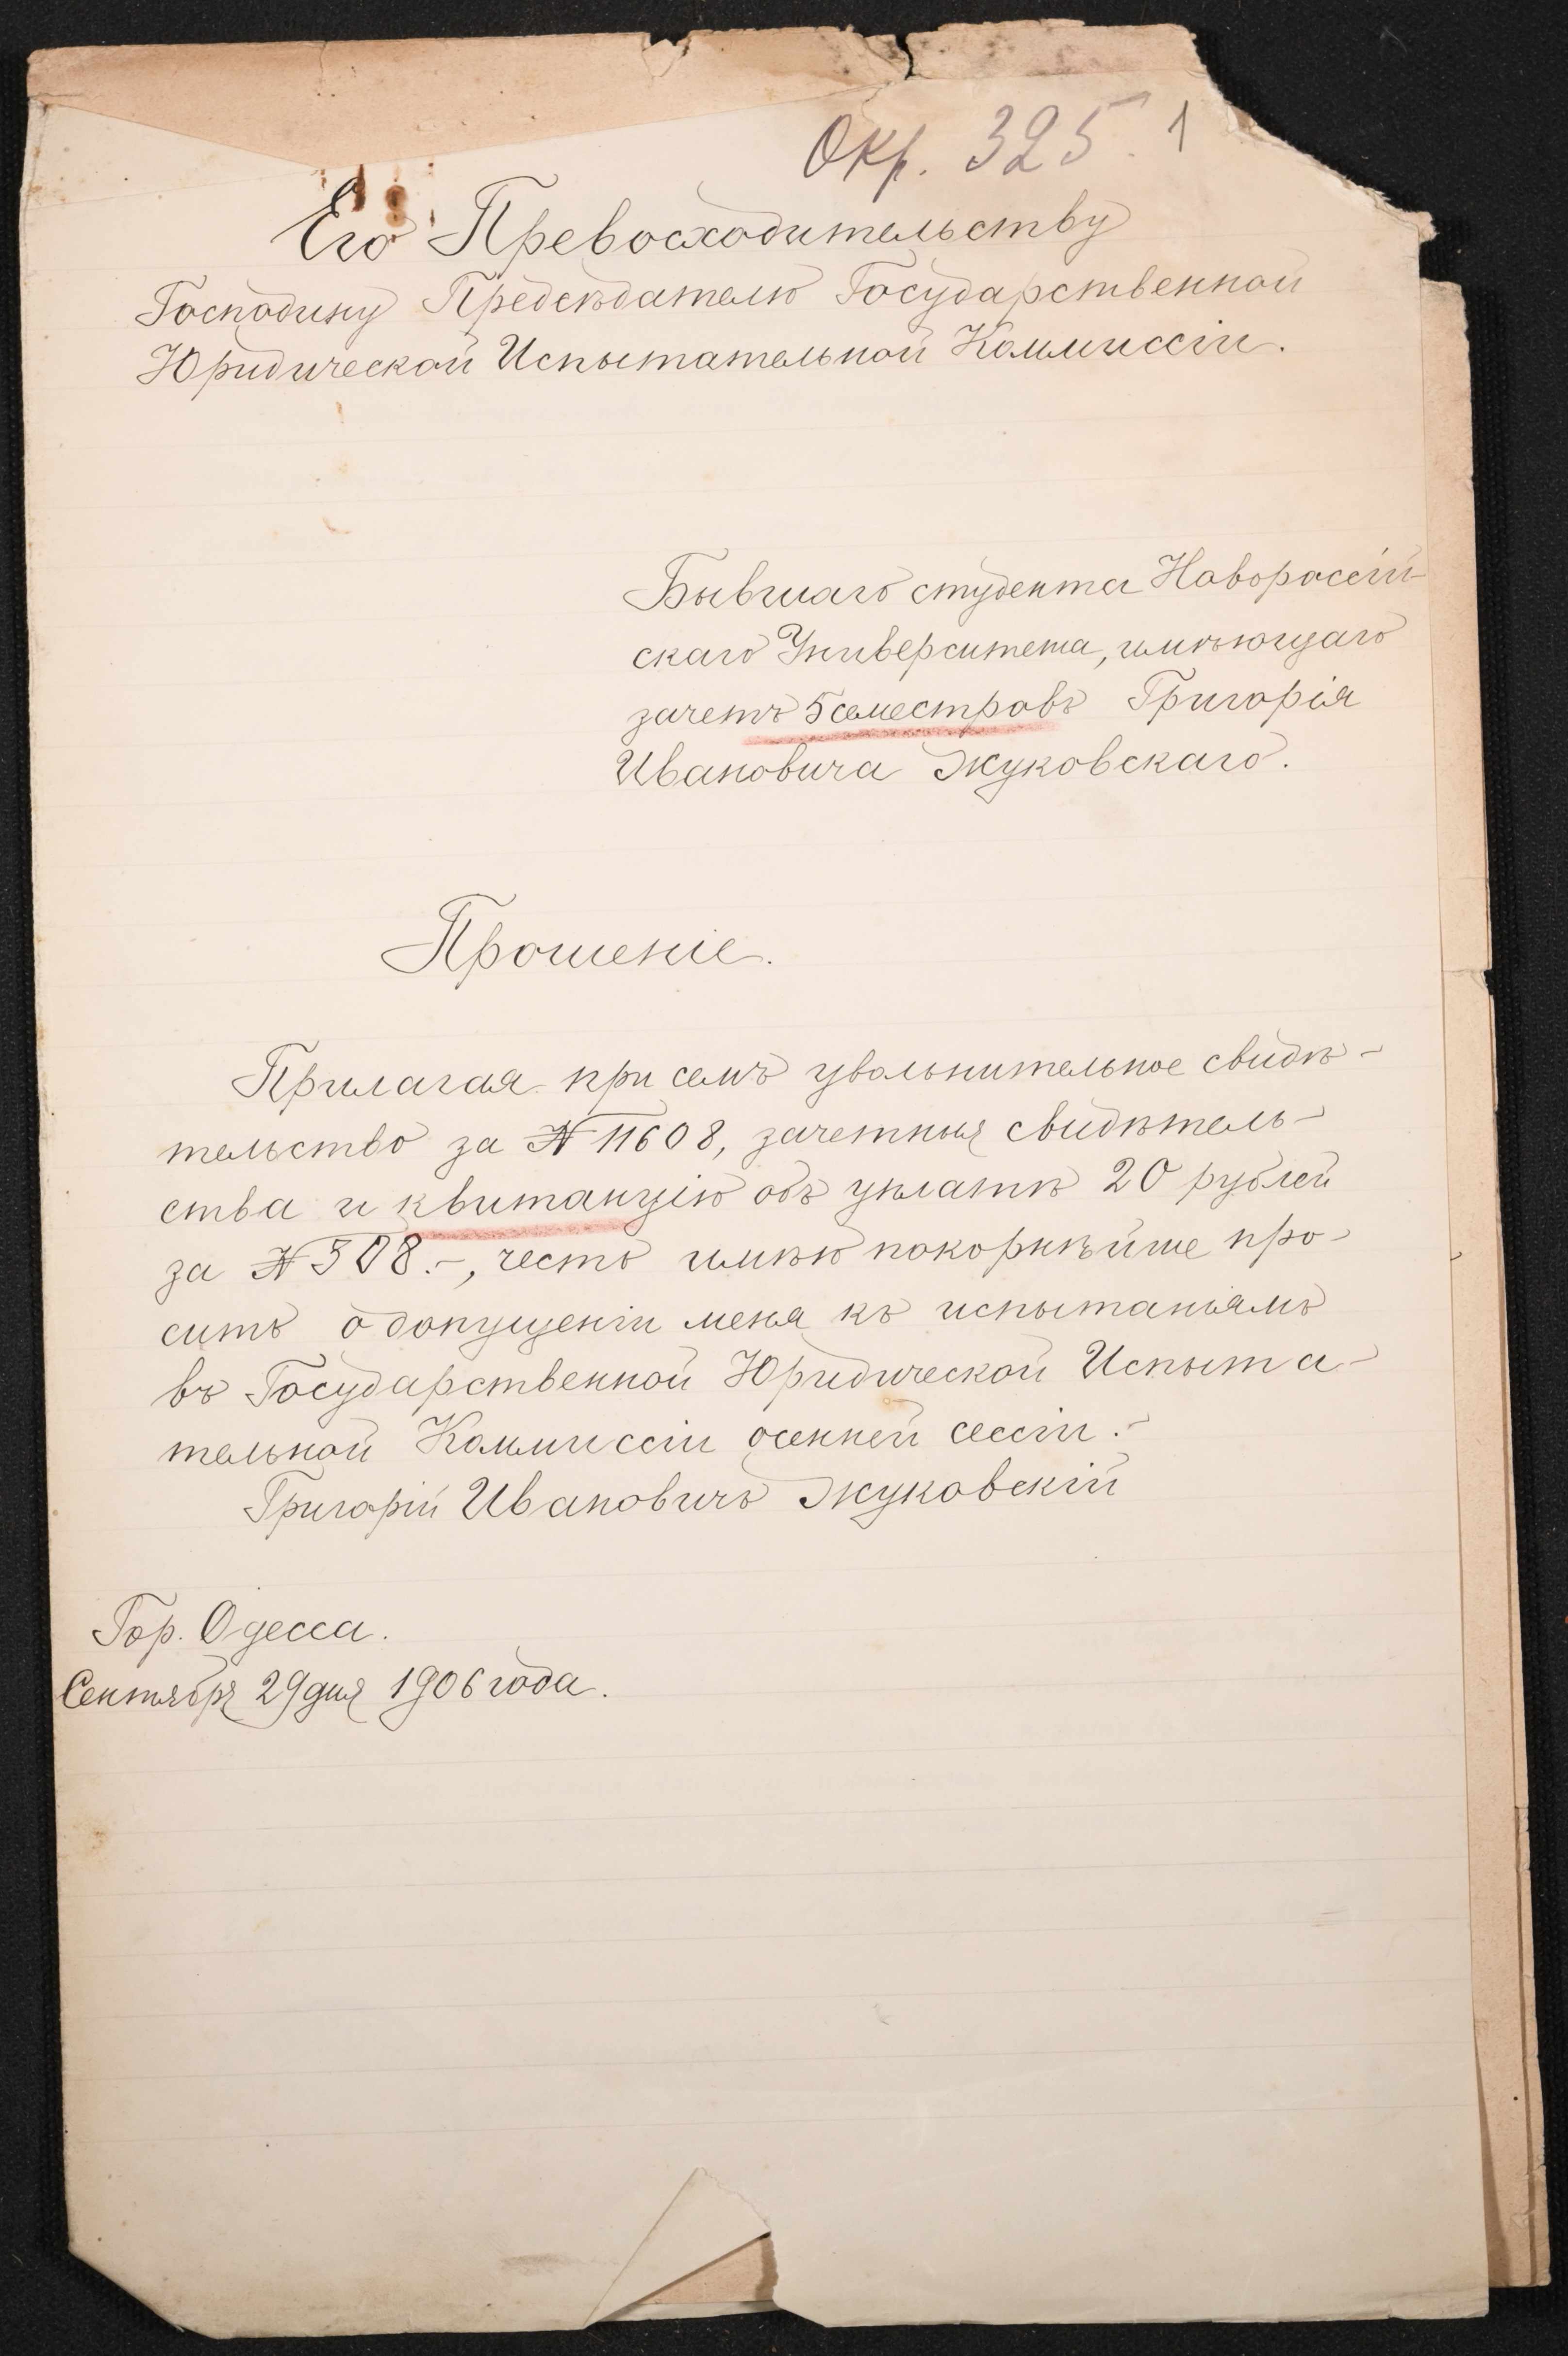 Окр. 325. 1
Его Превосходительству
Господину Предсѣдателю Государственной
Юридической Испытательной Коммиссіи.
Бывшаго студента Новороссій-
скаго Университета, имѣющаго
зачетъ 5 семестровъ Григорія
Ивановича Жуковскаго.
Прошеніе.
Прилагая при семъ увольнительное свидѣ-
тельство за № 11608, зачетныя свидѣтель-
ства и квитанцію объ уплатѣ 20 рублей
за № 508.-, честь имѣю покорнѣйше про-
сить о допущеніи меня къ испытаніямъ
въ Государственной Юридической Испыта-
тельной Коммиссіи осенней сессіи.-
Григорій Ивановичъ Жуковскій
Гор. Одесса.
Сентября 29 дня 1906 года.